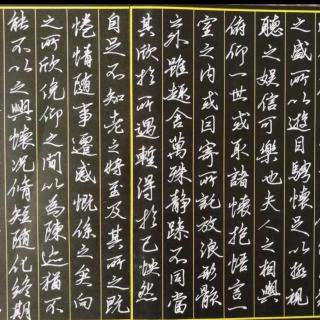 之盛所以遊目騁懷足以極視
聽之娛信可樂也夫人之相與
俯仰一世或取諸懷抱悟言一
室之內或因寄所託放浪形骸
之外雖趣舍萬殊靜躁不同當
其欣於所遇暫得於己怏然
自足不知老之將至及其所之既
惓情隨事遷感慨係之矣向
之所欣俛仰之間以為陳迹猶不
能不以之興懷況脩短隨化終期